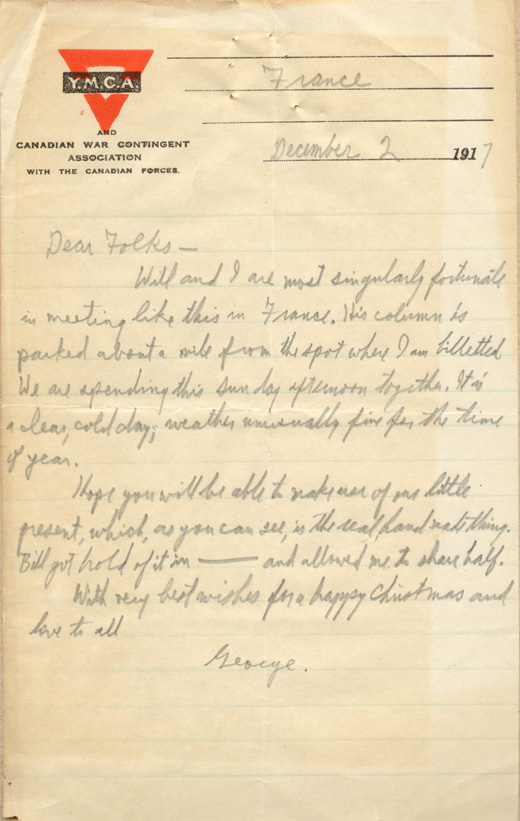 Y.M.C.A.
AND
CANADIAN WAR CONTINGENT
ASSOCIATION
WITH THE CANADIAN FORCES.
France
December 2 1917
Dear Folks —
Will and I are most singularly fortunate
in meeting like this in France. His column is
parked about a mile from the spot where I am billetted
We are spending this Sunday afternoon together. It is
a clear, cold day; weather unusually fine for the time
of year.
Hope you will be able to make use of our little
present, which, as you can see, is the real hand made thing.
Bill got hold of it in ——— and allowed me to share half.
With very best wishes for a happy Christmas and
love to all
George.